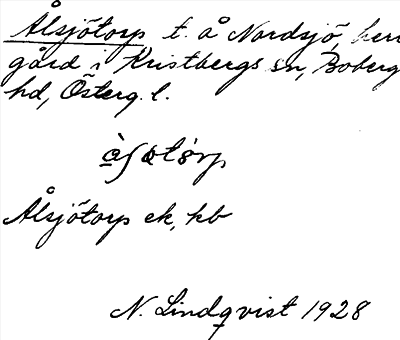 Ålsjötorp t. å Nordsjö, herr
gård i Kristbergs sn, Boberg
hd, Österg. l.
Ålsjötorp ek, kb
N. Lindqvist 1928